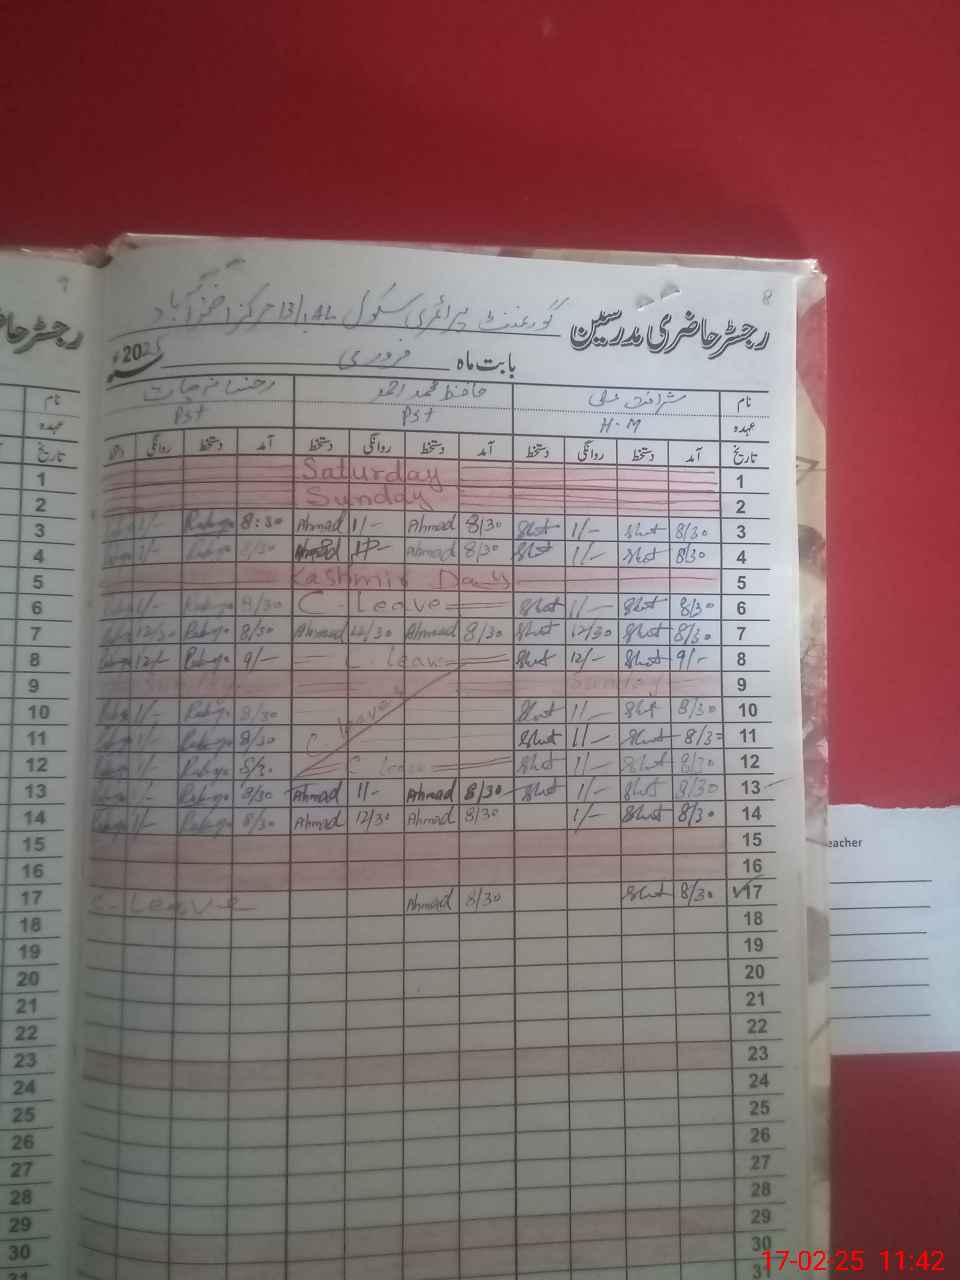 8
رجسٹر حاضری مدرسین گورنمنٹ پرائمری سکول 13/1.AL مرکز اختر آباد
بابت ماہ فروری 2025ء
نام شرافت علی حافظ محمد احمد
عہدہ H.M PST PST
تاریخ آمد دستخط روانگی دستخط آمد دستخط روانگی دستخط آمد دستخط روانگی دستخط
1 Saturday
2 Sunday
3 8/30 Shot 1/- Shot 8/30 Ahmad 1/- Ahmad 8:30 Rabya 1/-
4 8/30 Shot 1/- Shot 8/30 Ahmad 1/- Ahmad 8/30 Rabya 1/-
5 Kashmir Day
6 8/30 Shot 1/- Shot C-Leave 8/30 Rabya 1/-
7 8/30 Shot 12/30 Shot 8/30 Ahmad 12/30 Ahmad 8/30 Rabya 12/30
8 9/- Shot 12/- Shot C Leave 9/- Rabya 12/-
9 Sunday Sunday
10 8/30 Shot 1/- Shot C. leave 8/30 Rabya 1/-
11 8/30 Shot 1/- Shot 8/30 Rabya 1/-
12 8/30 Shot 1/- Shot C Leave 8/30 Rabya 1/-
13 8/30 Shot 1/- Shot 8/30 Ahmad 1/- Ahmad 8/30 Rabya 1/-
14 8/30 Shot 1/- 8/30 Ahmad 12/30 Ahmad 8/30 Rabya 1/-
15
16
17 8/30 Shot 8/30 Ahmad C-Leave
18
19
20
21
22
23
24
25
26
27
28
29
30
31
9
رجسٹر
نام
عہدہ
تاریخ
1
2
3
4
5
6
7
8
9
10
11
12
13
14
15
16
17
18
19
20
21
22
23
24
25
26
27
28
29
30
31
eacher
17-02-25 11:42